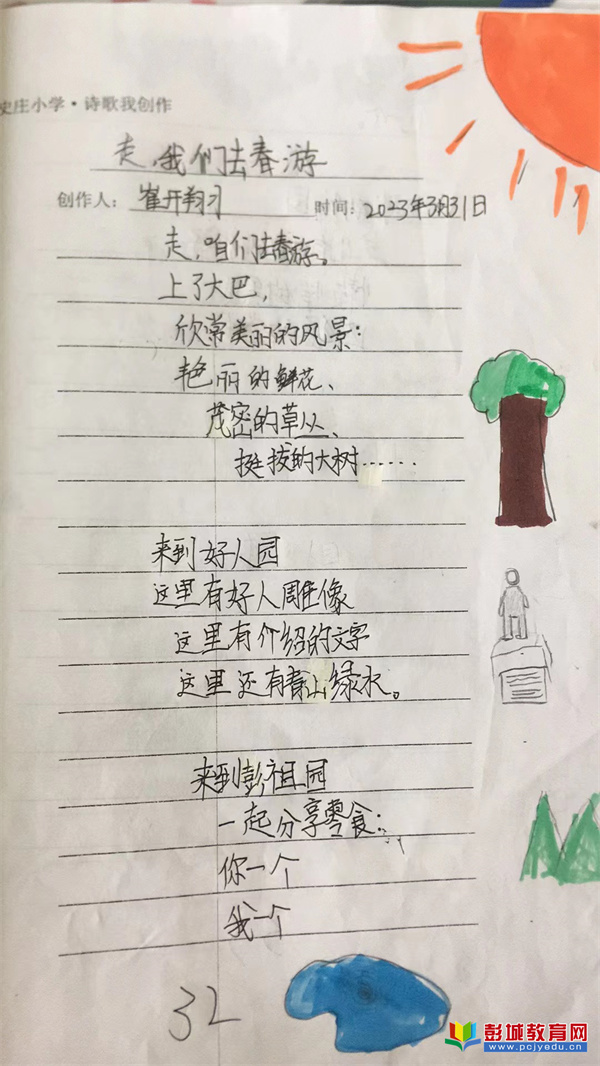 史庄小学·诗歌我创作
走,我们去春游
创作人: 崔开翔 时间: 2023年3月31日
走,咱们去春游。
上了大巴,
欣常美丽的风景:
艳丽的鲜花、
茂密的草丛、
挺拔的大树……
来到好人园
这里有好人雕像
这里有介绍的文字
这里还有青山绿水。
来到彭祖园
一起分享零食:
你一个
我一个
32
彭城教育网
www.pcjyedu.cn